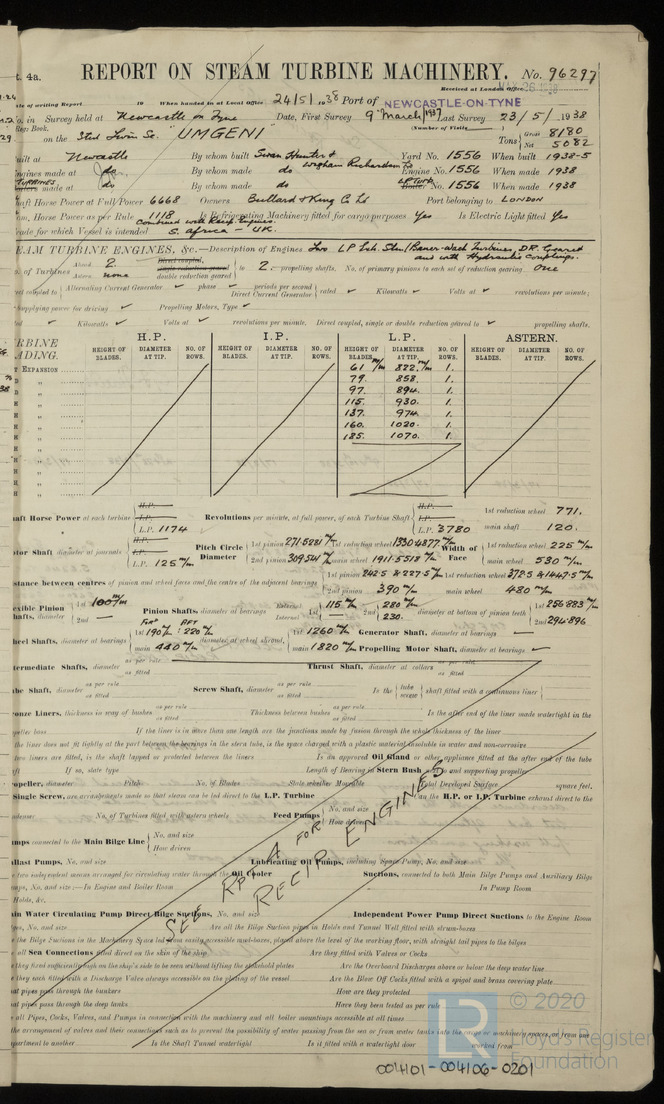 t. 4a. REPORT ON STEAM TURBINE MACHINERY. No. 96297
Received at London Office
of writing Report 19 When handed in at Local Office 24/5/1938 Port of NEWCASTLE-ON-TYNE
in Survey held at Newcastle on Tyne Date, First Survey 9 March/1937 Last Survey 23/5/1938
Book. (Number of Visits
on the Steel "UMGENI" Tons Gross 8180 Net 5082
built at Newcastle By whom built Swan Hunter & Wigham Richardson Ld Yard No. 1556 When built 1938-5
Engines made at do. By whom made do Engine No. 1556 When made 1938
TURBINES made at do By whom made do LP Turb. No. 1556 When made 1938
Shaft Horse Power at Full Power 6668 Owners Bullard & King C. Ld Port belonging to LONDON
Horse Power as per Rule 1118 Combined with Recip. Engines. Is Refrigerating Machinery fitted for cargo purposes Yes Is Electric Light fitted Yes
Trade for which Vessel is intended S. Africa - UK.
STEAM TURBINE ENGINES, &c.—Description of Engines Two LP Exh. Stm. Bauer-Wach Turbines, D.R. Geared
and with Hydraulic Couplings.
of Turbines Ahead 2 Astern none Direct coupled, single reduction geared double reduction geared to 2 propelling shafts. No. of primary pinions to each set of reduction gearing One
coupled to Alternating Current Generator phase periods per second Direct Current Generator rated Kilowatts Volts at revolutions per minute;
supplying power for driving Propelling Motors, Type
Kilowatts Volts at revolutions per minute. Direct coupled, single or double reduction geared to propelling shafts.
TURBINE BLADING. H.P. I.P. L.P. ASTERN.
HEIGHT OF BLADES. DIAMETER AT TIP. NO. OF ROWS. HEIGHT OF BLADES. DIAMETER AT TIP. NO. OF ROWS. HEIGHT OF BLADES. DIAMETER AT TIP. NO. OF ROWS. HEIGHT OF BLADES. DIAMETER AT TIP. NO. OF ROWS.
EXPANSION 61 m/m 822 m/m 1.
" 79. 858. 1.
" 97. 894. 1.
" 115. 930. 1.
" 137. 974. 1.
" 160. 1020. 1.
" 185. 1070. 1.
Shaft Horse Power at each turbine H.P. I.P. L.P. 1174 Revolutions per minute, at full power, of each Turbine Shaft H.P. I.P. L.P. 3780 1st reduction wheel 771. main shaft 120.
Rotor Shaft diameter at journals H.P. I.P. L.P. 125 m/m Pitch Circle Diameter 1st pinion 271.5281 m/m 1st reduction wheel 1330.4877 m/m Width of Face 1st reduction wheel 225 m/m
2nd pinion 309.541 m/m main wheel 1911.5518 m/m main wheel 530 m/m
Distance between centres of pinion and wheel faces and the centre of the adjacent bearings 1st pinion 242.5 & 227.5 m/m 1st reduction wheel 372.5 & 1447.5 m/m
2nd pinion 390 m/m main wheel 480 m/m
Flexible Pinion Shafts, diameter 1st 100 m/m 2nd — Pinion Shafts, diameter at bearings External 1st 115 m/m 2nd 280 m/m Internal 1st — 230. diameter at bottom of pinion teeth 1st 256.883 m/m 2nd 294.896
Wheel Shafts, diameter at bearings 1st FOR'D 190 m/m : AFT 220 m/m main 440 m/m diameter at wheel shroud, 1st 1260 m/m main 1820 m/m Generator Shaft, diameter at bearings — Propelling Motor Shaft, diameter at bearings
Intermediate Shafts, diameter as per rule as fitted Thrust Shaft, diameter at collars as per rule as fitted
Tube Shaft, diameter as per rule as fitted Screw Shaft, diameter as per rule as fitted Is the tube screw shaft fitted with a continuous liner
Bronze Liners, thickness in way of bushes as per rule as fitted Thickness between bushes as per rule as fitted Is the after end of the liner made watertight in the
propeller boss If the liner is in more than one length are the junctions made by fusion through the whole thickness of the liner
the liner does not fit tightly at the part between the bearings in the stern tube, is the space charged with a plastic material insoluble in water and non-corrosive
two liners are fitted, is the shaft lapped or protected between the liners Is an approved Oil Gland or other appliance fitted at the after end of the tube
If so, state type Length of Bearing in Stern Bush next to and supporting propeller
Propeller, diameter Pitch No. of Blades State whether Moveable Total Developed Surface square feet.
Single Screw, are arrangements made so that steam can be led direct to the L.P. Turbine can the H.P. or I.P. Turbine exhaust direct to the
No. of Turbines fitted with astern wheels Feed Pumps No. and size How driven
Pumps connected to the Main Bilge Line No. and size How driven
Ballast Pumps, No. and size Lubricating Oil Pumps, including Spare Pump, No. and size
two independent means arranged for circulating water through the Oil Cooler Suctions, connected to both Main Bilge Pumps and Auxiliary Bilge
Pumps, No. and size:—In Engine and Boiler Room In Pump Room
Holds, &c.
SEE RPT 4 FOR RECIP. ENGINES
Main Water Circulating Pump Direct Bilge Suctions, No. and size Independent Power Pump Direct Suctions to the Engine Room
No. and size Are all the Bilge Suction pipes in Holds and Tunnel Well fitted with strum-boxes
the Bilge Suctions in the Machinery Space led from easily accessible mud-boxes, placed above the level of the working floor, with straight tail pipes to the bilges
all Sea Connections fitted direct on the skin of the ship Are they fitted with Valves or Cocks
they fixed sufficiently high on the ship's side to be seen without lifting the stokehold plates Are the Overboard Discharges above or below the deep water line
they each fitted with a Discharge Valve always accessible on the plating of the vessel Are the Blow Off Cocks fitted with a spigot and brass covering plate
pipes pass through the bunkers How are they protected
pipes pass through the deep tanks Have they been tested as per rule
all Pipes, Cocks, Valves, and Pumps in connection with the machinery and all boiler mountings accessible at all times
the arrangement of valves and their connections such as to prevent the possibility of water passing from the sea or from water tanks into the cargo or machinery spaces, or from one
compartment to another Is the Shaft Tunnel watertight Is it fitted with a watertight door worked from
LR © 2020
Lloyd's Register
Foundation
004101-004106-0201